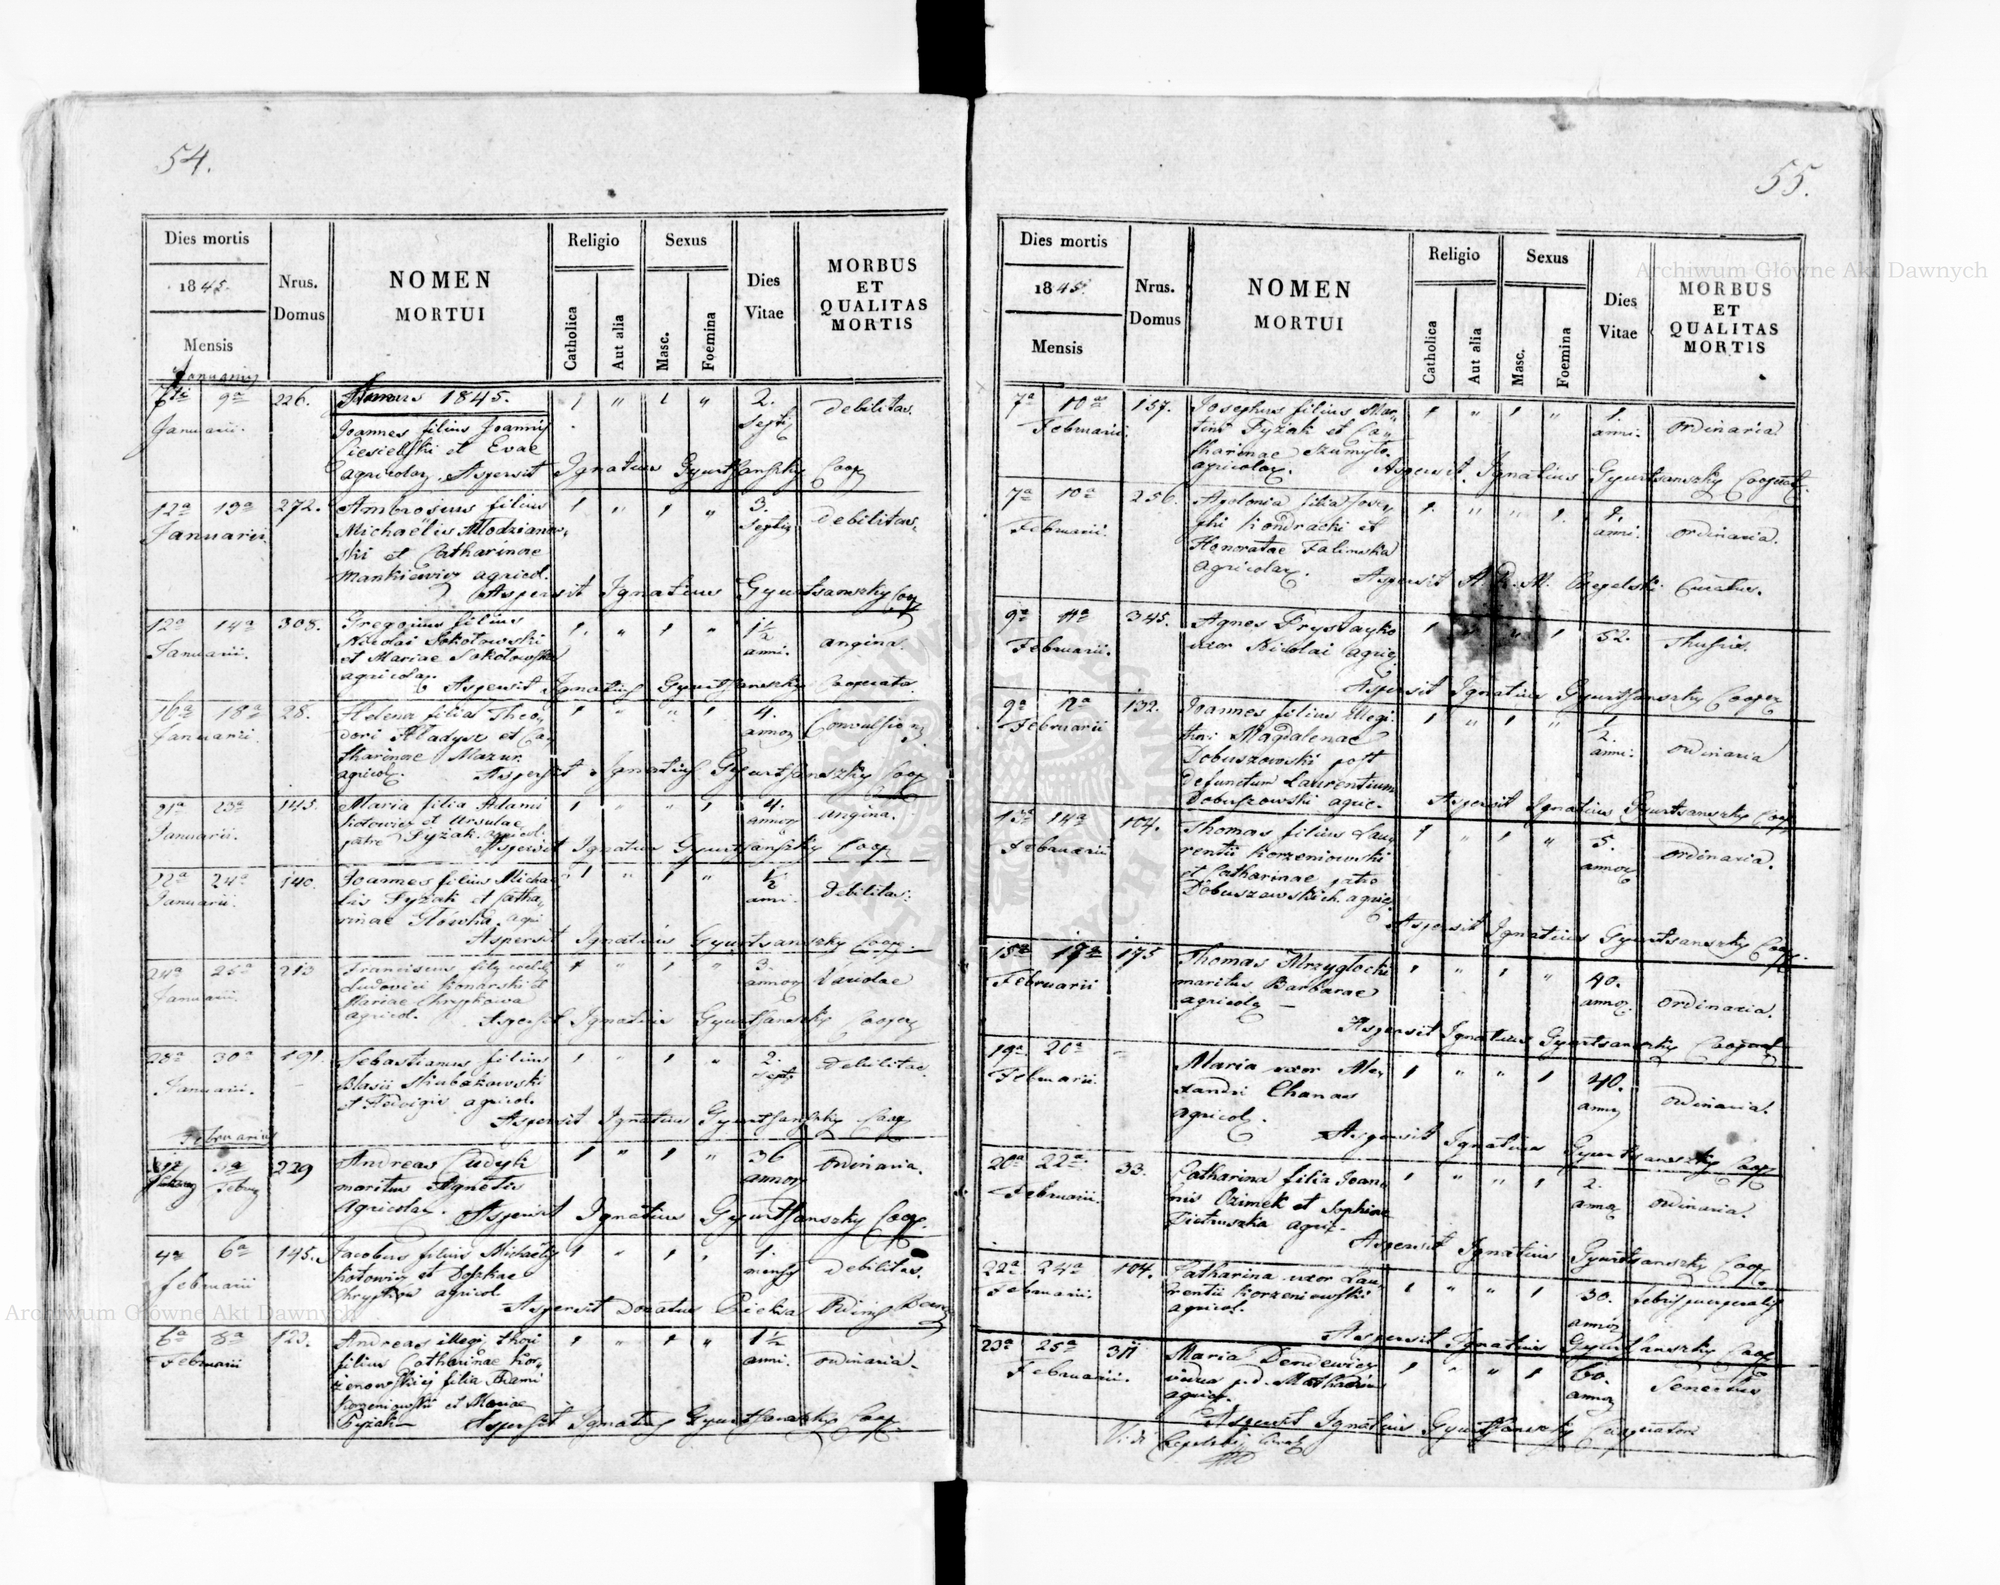 54.
Dies mortis
1845.
Mensis
Nrus.
Domus
NOMEN
MORTUI
Religio
Catholica
Aut alia
Sexus
Masc.
Foemina
Dies
Vitae
MORBUS
ET
QUALITAS
MORTIS
Januarius
9a
Januarii.
226.
Annus 1845.
Joannes filius Joannis
Ciesielski et Evae
agricolar. Aspersit Ignatius Gyurtsanszky Coop
2.
Debilitas.
12a 13a 272.
Januarii
Ambrosius filius
Michaëlis Mlodzianow
ski et Catharinae
Mankiewicz agricol.
Aspersit Ignatius Gyurtsanszky Coop
3.
Debilitas.
12a 14a 308.
Januarii.
Gregorius filius
Nicolai Sokołowski
et Mariae Sokołowska
agricolar. Aspersit Ignatius Gyurtsanszky Cooperato.
1½
anni.
angina.
16a 18a 28.
Januarii.
Helena filia Theo
dori Hladysz et Ca
tharinae Mazur
agricol. Aspersit Ignatius Gyurtsanszky Coop
4.
annor
21a 23a 145.
Januarii.
Maria filia Adami
Kotowicz et Ursulae
patre Pyżak agricol.
Aspersit Ignatius Gyurtsanszky Coop
4.
annor
angina.
22a 24a 140.
Januarii
Joannes filius Michae
lis Pyżak et Catha
rinae Główka agri
Aspersit Ignatius Gyurtsanszky Coop.
½
anni.
debilitas.
24a 25a 213
Januarii.
Ludovici Konarski et
Mariae
agricol. Aspersit Ignatius Gyurtsanszky Cooper
3.
annor
Variolae
28a 30a 191.
Januarii.
Sebastianus filius
Blasii
et Hedvigis agricol.
Aspersit Ignatius Gyurtsanszky Coop
2.
debilitas
Februarius
229
Andreas Cudyk
maritus Agnetis
Agricolar. Aspersit Ignatius Gyurtsanszky Coop.
36
annor
ordinaria.
4a 6a 145.
februarii
Jacobus filius Michaëlis
Kotowicz et
agricol.
Aspersit Donatus
1.
mensis
debilitas.
6a 8a 123.
Februarii
Andreas illegi thori
filius Catharinae Kor
filia Adami
Korzeniowski et Mariae
Pyżak Aspersit Ignatius Gyurtsanszky Coop.
1½
anni.
ordinaria.
55.
Dies mortis
1845.
Mensis
Nrus.
Domus
NOMEN
MORTUI
Religio
Catholica
Aut alia
Sexus
Masc.
Foemina
Dies
Vitae
MORBUS
ET
QUALITAS
MORTIS
7a 10a 157.
Februarii.
Josephus filius Mar
tini Pyżak et Ca
tharinae Szumyło
agricolar. Aspersit Ignatius Gyurtsanszky Cooperat.
1.
anni.
ordinaria.
7a 10a 256.
Februarii.
Apolonia filia Jose
phi Kondracki et
Honoratae Falinska
agricolar. Aspersit A. R. M. Czepelski Curatus.
anni.
ordinaria.
9a 11a 345.
Februarii.
Agnes Prystayko
uxor Nicolai agric
Aspersit Ignatius Gyurtsanszky Cooper
52.
9a 12a 132.
Februarii
Joannes filius illegi
timi Magdalenae
Dobuszowski post
defunctum Laurentium
Dobuszowski agric. Aspersit Ignatius Gyurtsanszky Coop
anni.
ordinaria
13a 14a 104.
Februarii
Thomas filius Lau
rentii Korzeniowski
et Catharinae patre
Dobuszowskich agric.
Aspersit Ignatius Gyurtsanszky Coop.
5.
annor
ordinaria.
15a 17a 175
Februarii
Thomas Mrzygłocki
maritus Barbarae
agricola
Aspersit Ignatius Gyurtsanszky Cooperat
40.
annor
ordinaria.
19a 20a
Februarii.
Maria uxor Ale
xandri Chanas
agricol.
Aspersit Ignatius Gyurtsanszky Coop
40.
annor
ordinaria.
20a 22a 33.
Februarii.
Catharina filia Joan
nis Ozimek et Sophiae
Pietruszka agric.
Aspersit Ignatius Gyurtsanszky Coop.
2.
annor
ordinaria.
22a 24a 104.
Februarii.
Catharina uxor Lau
rentii Korzeniowski
agricol.
Aspersit Ignatius Gyurtsanszky Coop
30.
annor
febris puerperalis
23a 25a 311
Februarii.
Maria Dendewicz
vidua p.d. Mathaeum
agric.
Aspersit Ignatius Gyurtsanszky Cooperator
60.
annor
Senectus
Vidi Czepelski
Archiwum Główne Akt Dawnych
Archiwum Główne Akt Dawnych